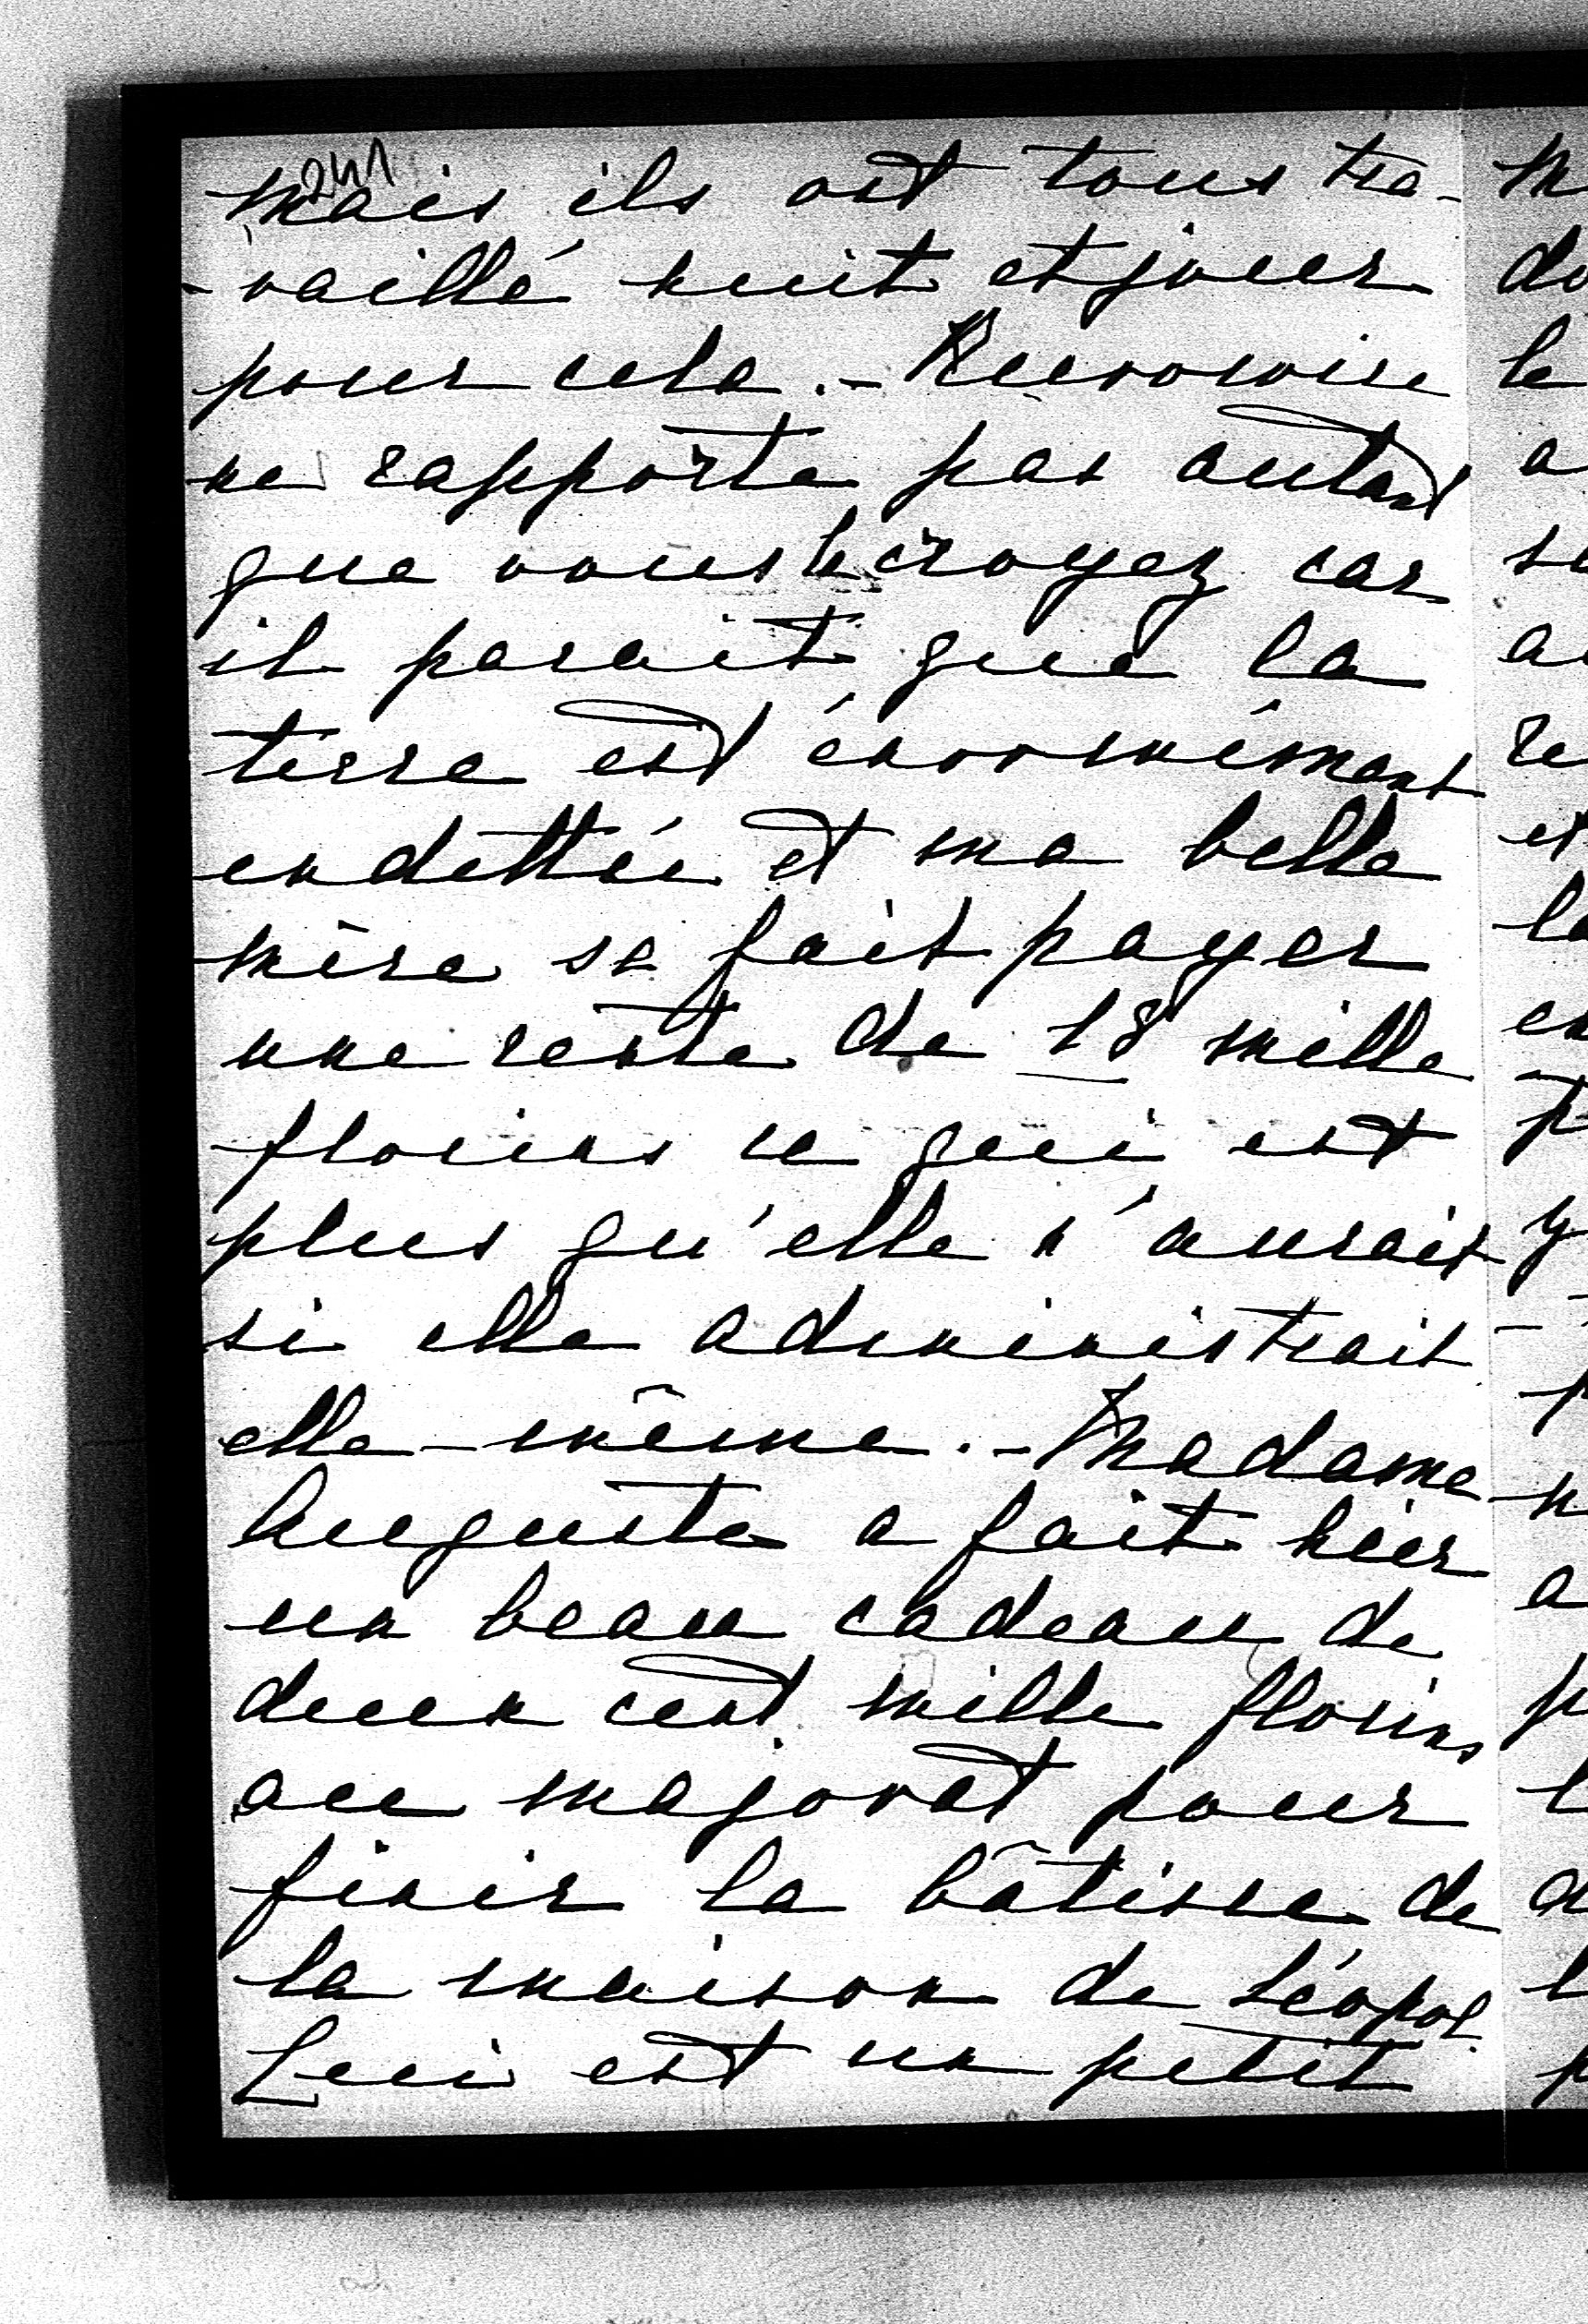 241
mais ils ont tous tra-
-vaillé nuit et jour
pour cela. -
ne rapporte pas autant
que vous le croyez car
il parait que la
terre est énormément
endettée et ma belle
mère se fait payer
une rente de 18 mille
florins ce qui est
plus qu'elle n'aurait
si elle administrait
elle-même. - Madame
Auguste a fait hier
un beau cadeau de
deux cent mille florins
au majorat pour
finir la bâtisse de
la maison de Léopol.
Ceci est un petit